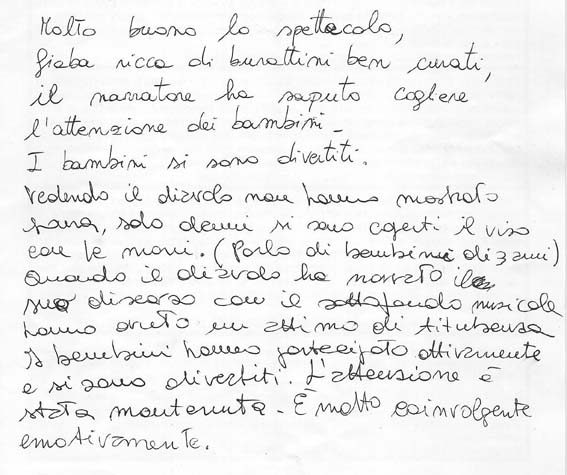 Molto buono lo spettacolo,
fiaba ricca di burattini ben curati,
il narratore ha saputo cogliere
l'attenzione dei bambini_
I bambini si sono divertiti.
Vedendo il diavolo non hanno mostrato
paura, solo alcuni si sono coperti il viso
con le mani. (Parlo di bambini di 3 anni)
Quando il diavolo ha narrato il
suo discorso con il sottofondo musicale
hanno avuto un attimo di titubanza
I bambini hanno partecipato attivamente
e si sono divertiti. L'attenzione è
stata mantenuta. È molto coinvolgente
emotivamente.